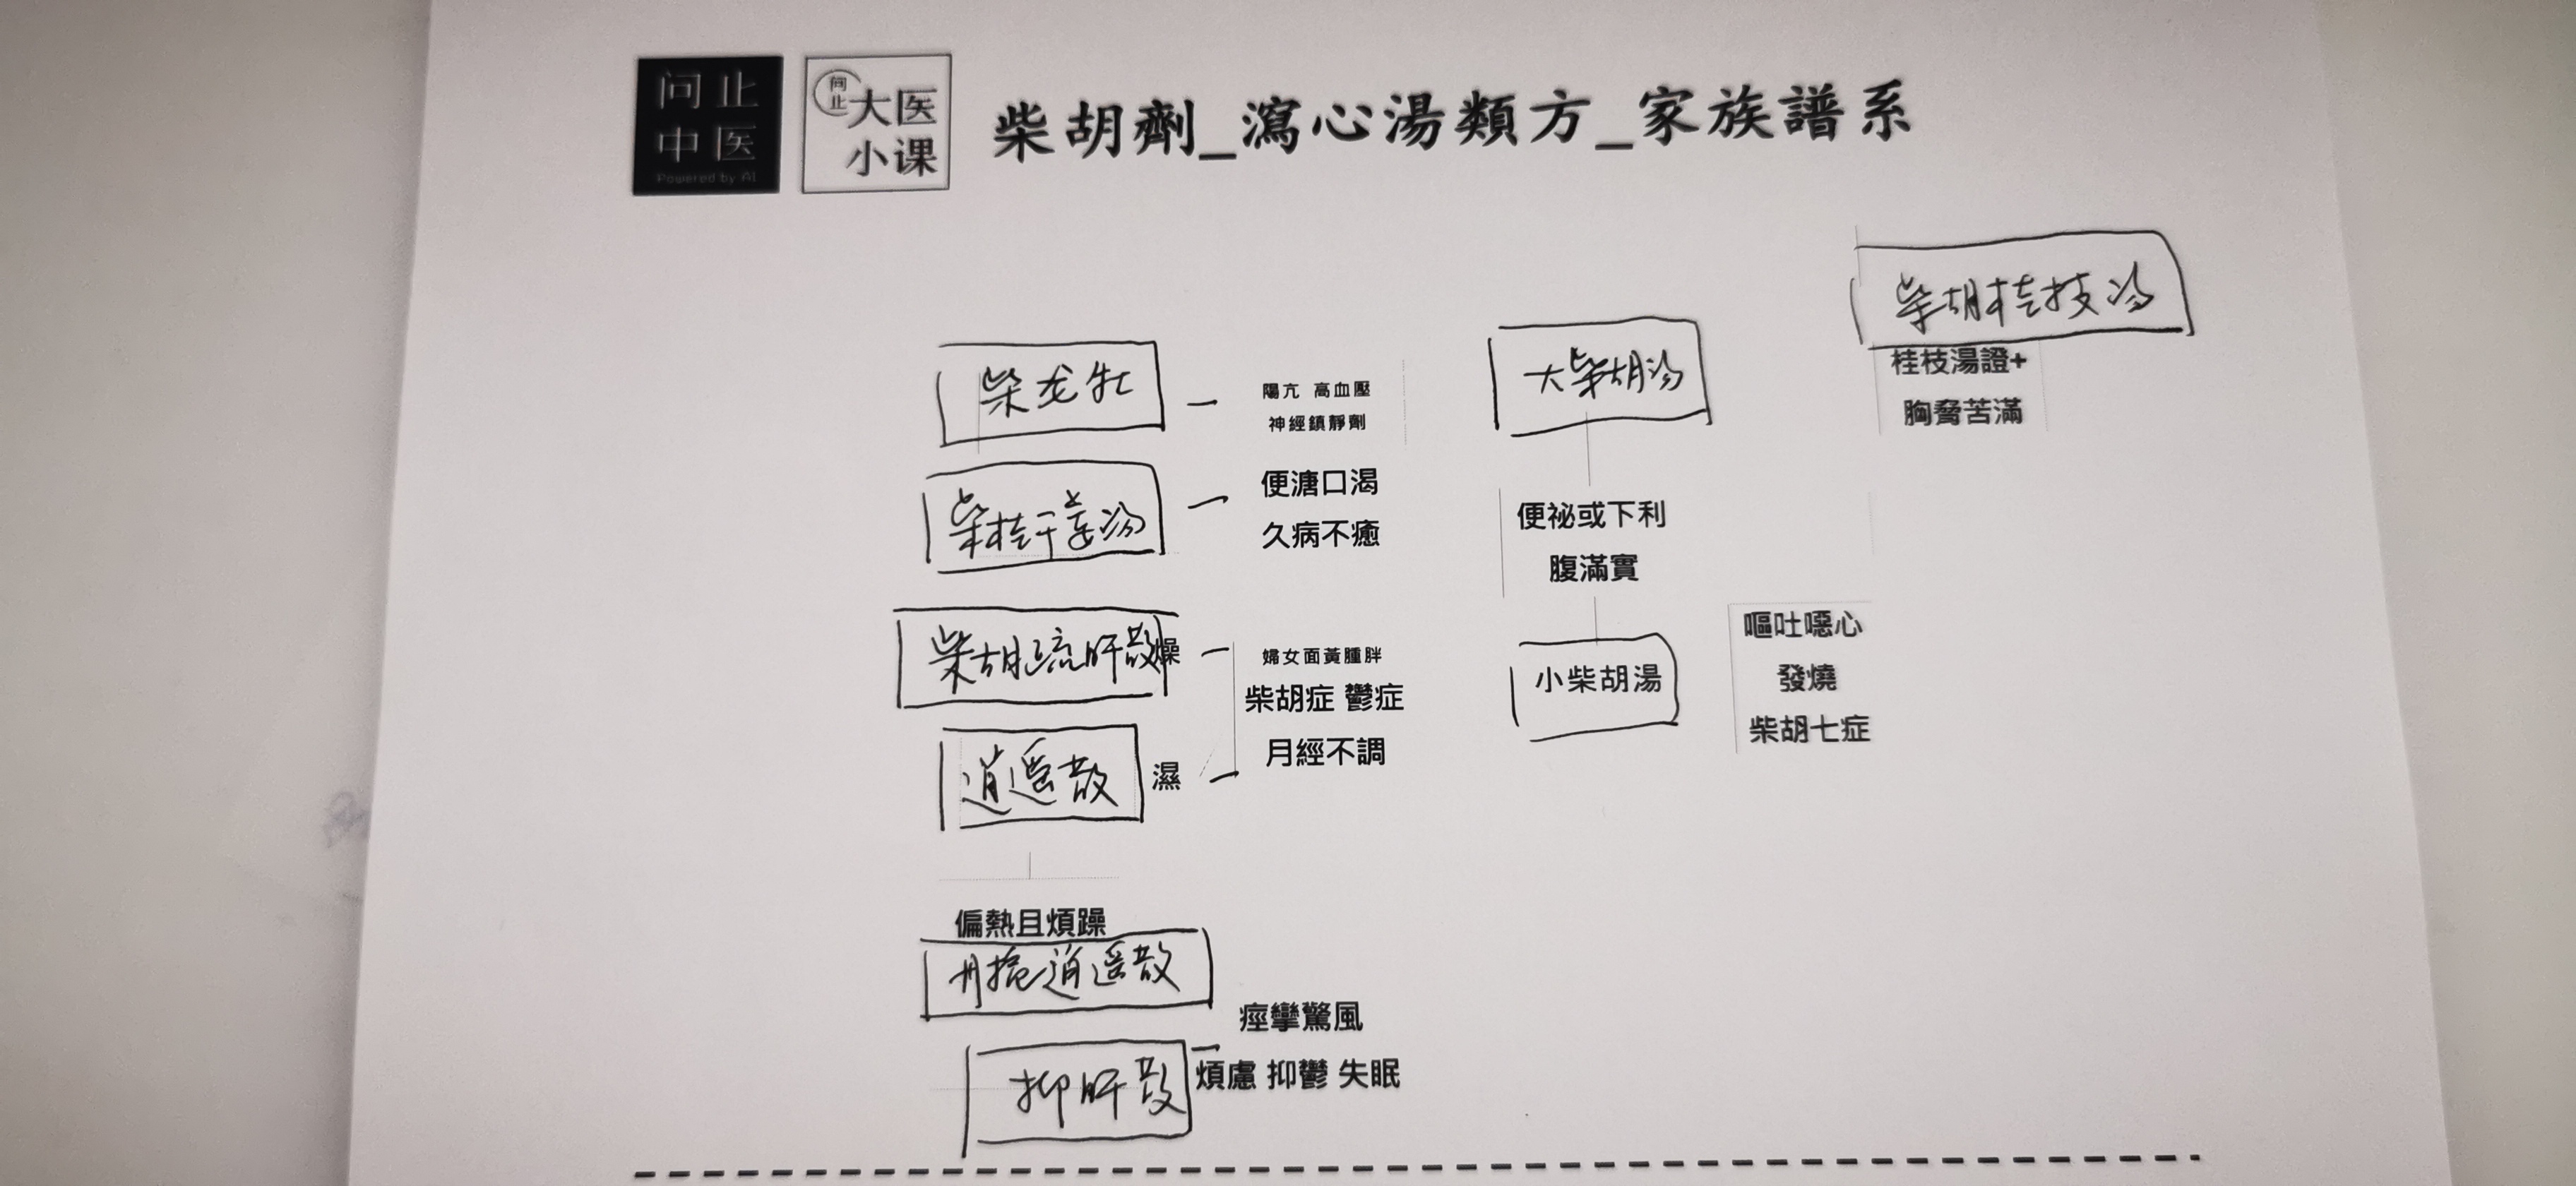 问止
中医
Powered by AI
问止
大医
小课
柴胡劑_瀉心湯類方_家族譜系
柴胡桂枝汤
桂枝湯證+
胸脅苦滿
柴龙牡
陽亢 高血壓
神經鎮靜劑
大柴胡汤
便祕或下利
腹滿實
柴桂干姜汤
便溏口渴
久病不癒
柴胡疏肝散
燥
婦女面黃腫胖
柴胡症 鬱症
月經不調
小柴胡湯
嘔吐噁心
發燒
柴胡七症
逍遥散
濕
偏熱且煩躁
丹栀逍遥散
抑肝散
痙攣驚風
煩慮 抑鬱 失眠